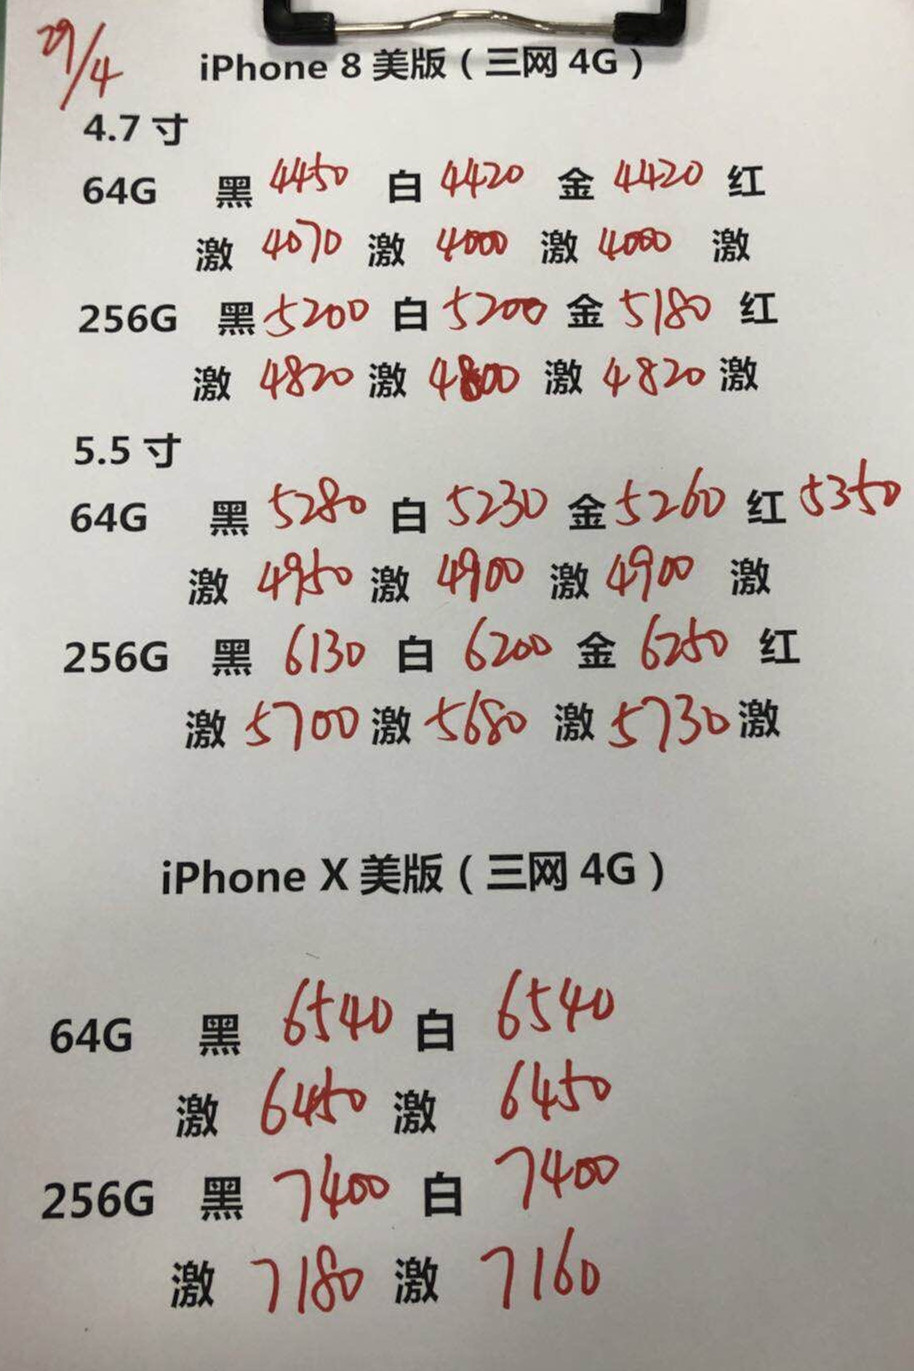 29/4
iPhone 8 美版（三网 4G）
4.7 寸
64G 黑 4450 白 4420 金 4420 红
激 4070 激 4000 激 4000 激
256G 黑 5200 白 5200 金 5180 红
激 4820 激 4800 激 4820 激
5.5 寸
64G 黑 5280 白 5230 金 5260 红 5350
激 4950 激 4900 激 4900 激
256G 黑 6130 白 6200 金 6250 红
激 5700 激 5680 激 5730 激
iPhone X 美版（三网 4G）
64G 黑 6540 白 6540
激 6450 激 6450
256G 黑 7400 白 7400
激 7180 激 7160